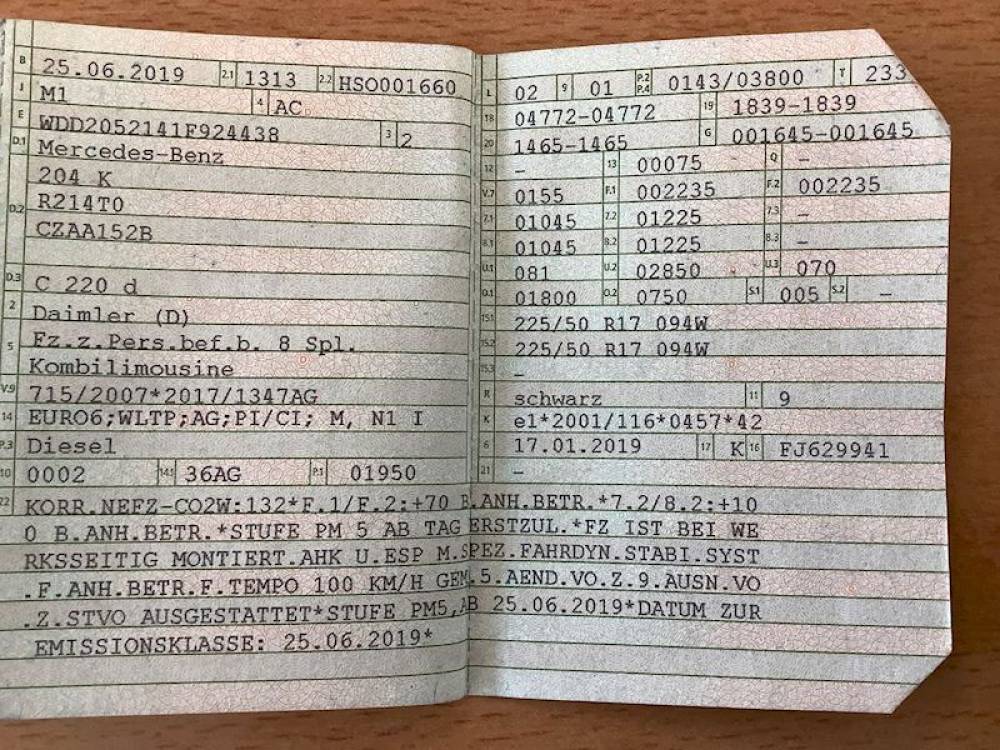 B 25.06.2019 2.1 1313 2.2 HSO001660
J M1 4 AC
E WDD2052141F924438 3 2
D.1 Mercedes-Benz
204 K
D.2 R214T0
CZAA152B
D.3 C 220 d
2 Daimler (D)
5 Fz.z.Pers.bef.b. 8 Spl.
Kombilimousine
V.9 715/2007*2017/1347AG
14 EURO6;WLTP;AG;PI/CI; M, N1 I
P.3 Diesel
10 0002 14.1 36AG P.1 01950
L 02 9 01 P.2 P.4 0143/03800 T 233
18 04772-04772 19 1839-1839
20 1465-1465 G 001645-001645
12 – 13 00075 Q –
V.7 0155 F.1 002235 F.2 002235
7.1 01045 7.2 01225 7.3 –
8.1 01045 8.2 01225 8.3 –
U.1 081 U.2 02850 U.3 070
O.1 01800 O.2 0750 S.1 005 S.2 –
15.1 225/50 R17 094W
15.2 225/50 R17 094W
15.3 –
R schwarz 11 9
K e1*2001/116*0457*42
6 17.01.2019 17 K 16 FJ629941
21 –
22 KORR.NEFZ-CO2W:132*F.1/F.2:+70 B.ANH.BETR.*7.2/8.2:+10
0 B.ANH.BETR.*STUFE PM 5 AB TAG ERSTZUL.*FZ IST BEI WE
RKSSEITIG MONTIERT.AHK U.ESP M.SPEZ.FAHRDYN.STABI.SYST
.F.ANH.BETR.F.TEMPO 100 KM/H GEM.5.AEND.VO.Z.9.AUSN.VO
.Z.STVO AUSGESTATTET*STUFE PM5,AB 25.06.2019*DATUM ZUR
EMISSIONSKLASSE: 25.06.2019*